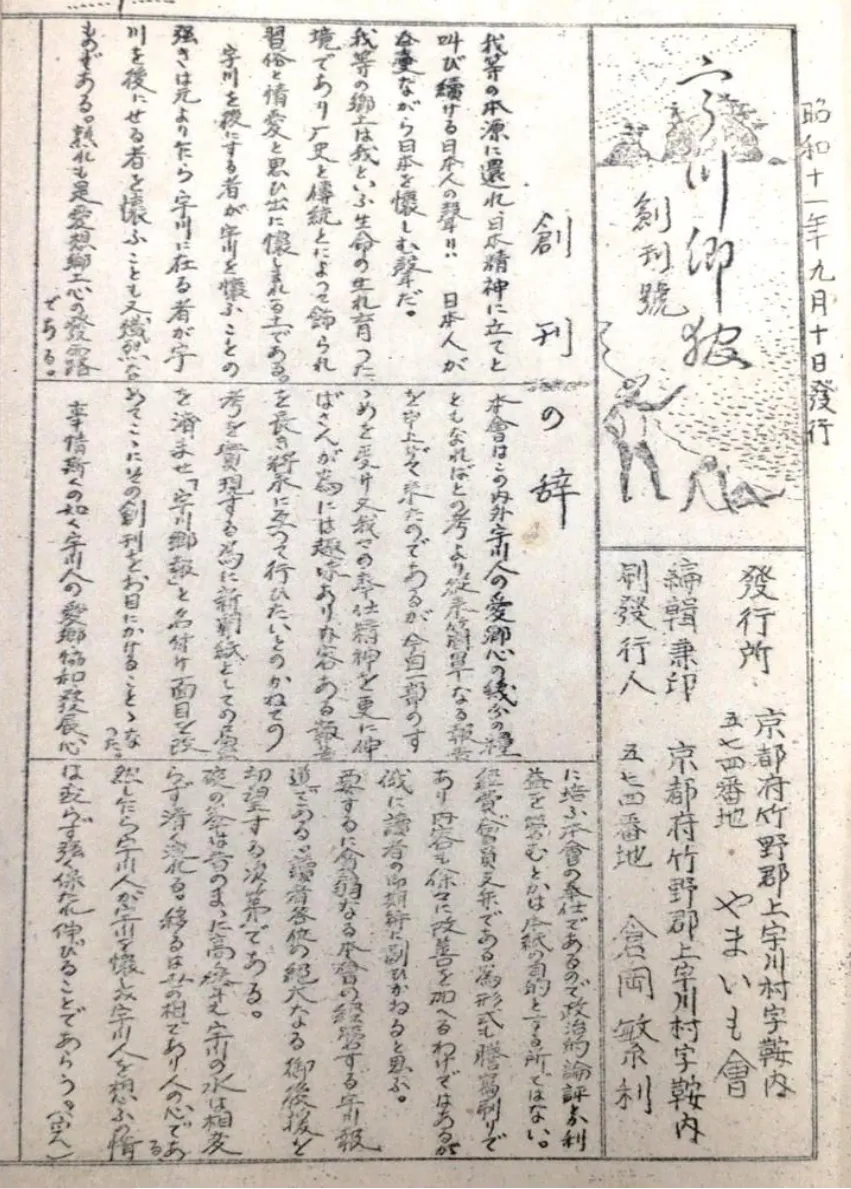 昭和十一年九月十日發行
宇川郷報
創刊號
發行所
京都府竹野郡上宇川村字鞍内
五七四番地
やまいも會
編輯兼印
刷發行人
京都府竹野郡上宇川村字鞍内
五七四番地
倉岡繁利
創刊の辞
我等の本源に還れ、日本精神に立てと
叫び續ける日本人の聲!! 日本人が
ながら日本を懐しむ聲だ。
我等の郷土は我といふ生命の生れ育つた
境であり歴史と傳統とによつて飾られ
習俗と情愛と思ひ出に懐しまれる土である。
宇川を後にする者が宇川を懐ふことの
強さは元よりだら宇川に在る者が宇
川を後にせる者を懐ふことも又熾烈な
ものである。熱れも是愛想郷土心の發露
である。
本會はこの内外宇川人の愛郷心の幾分の糧
ともなればとの考より從来簡單なる報告
を申上げて来たのであるが今回一部のすゝ
めを受け又我々の奉仕精神を更に伸
ばさんが為には趣味あり内容ある報告
を長き将来に亙つて行ひたいとのかねての
考を實現する為に新聞紙としての
を済ませ「宇川郷報」と名付け面目を改
めてこゝにその創刊をお目にかけることゝな
つた。
事情斯くの如く宇川人の愛郷協和發展心
に培ふ本會の奉仕であるので政治的論評や利
益を營むとかは本紙の目的とする所ではない。
經費が會員支弁である為形式も謄寫刷りで
あり内容も徐々に改善を加へるわけではあるが
俄に讀者の御期待に副ひかねると思ふ。
要するに貧弱なる本會の經營する宇川報
道である。讀者各位の絶大なる御後援を
切望する次第である。
の峯は昔のまゝに高く聳え宇川の水は相変
らず清く流れる。移るは世の相であり人の心である
然しだら宇川人が宇川を懐しみ宇川人を想ふの情
は変らず強く保たれ伸びることであらう。